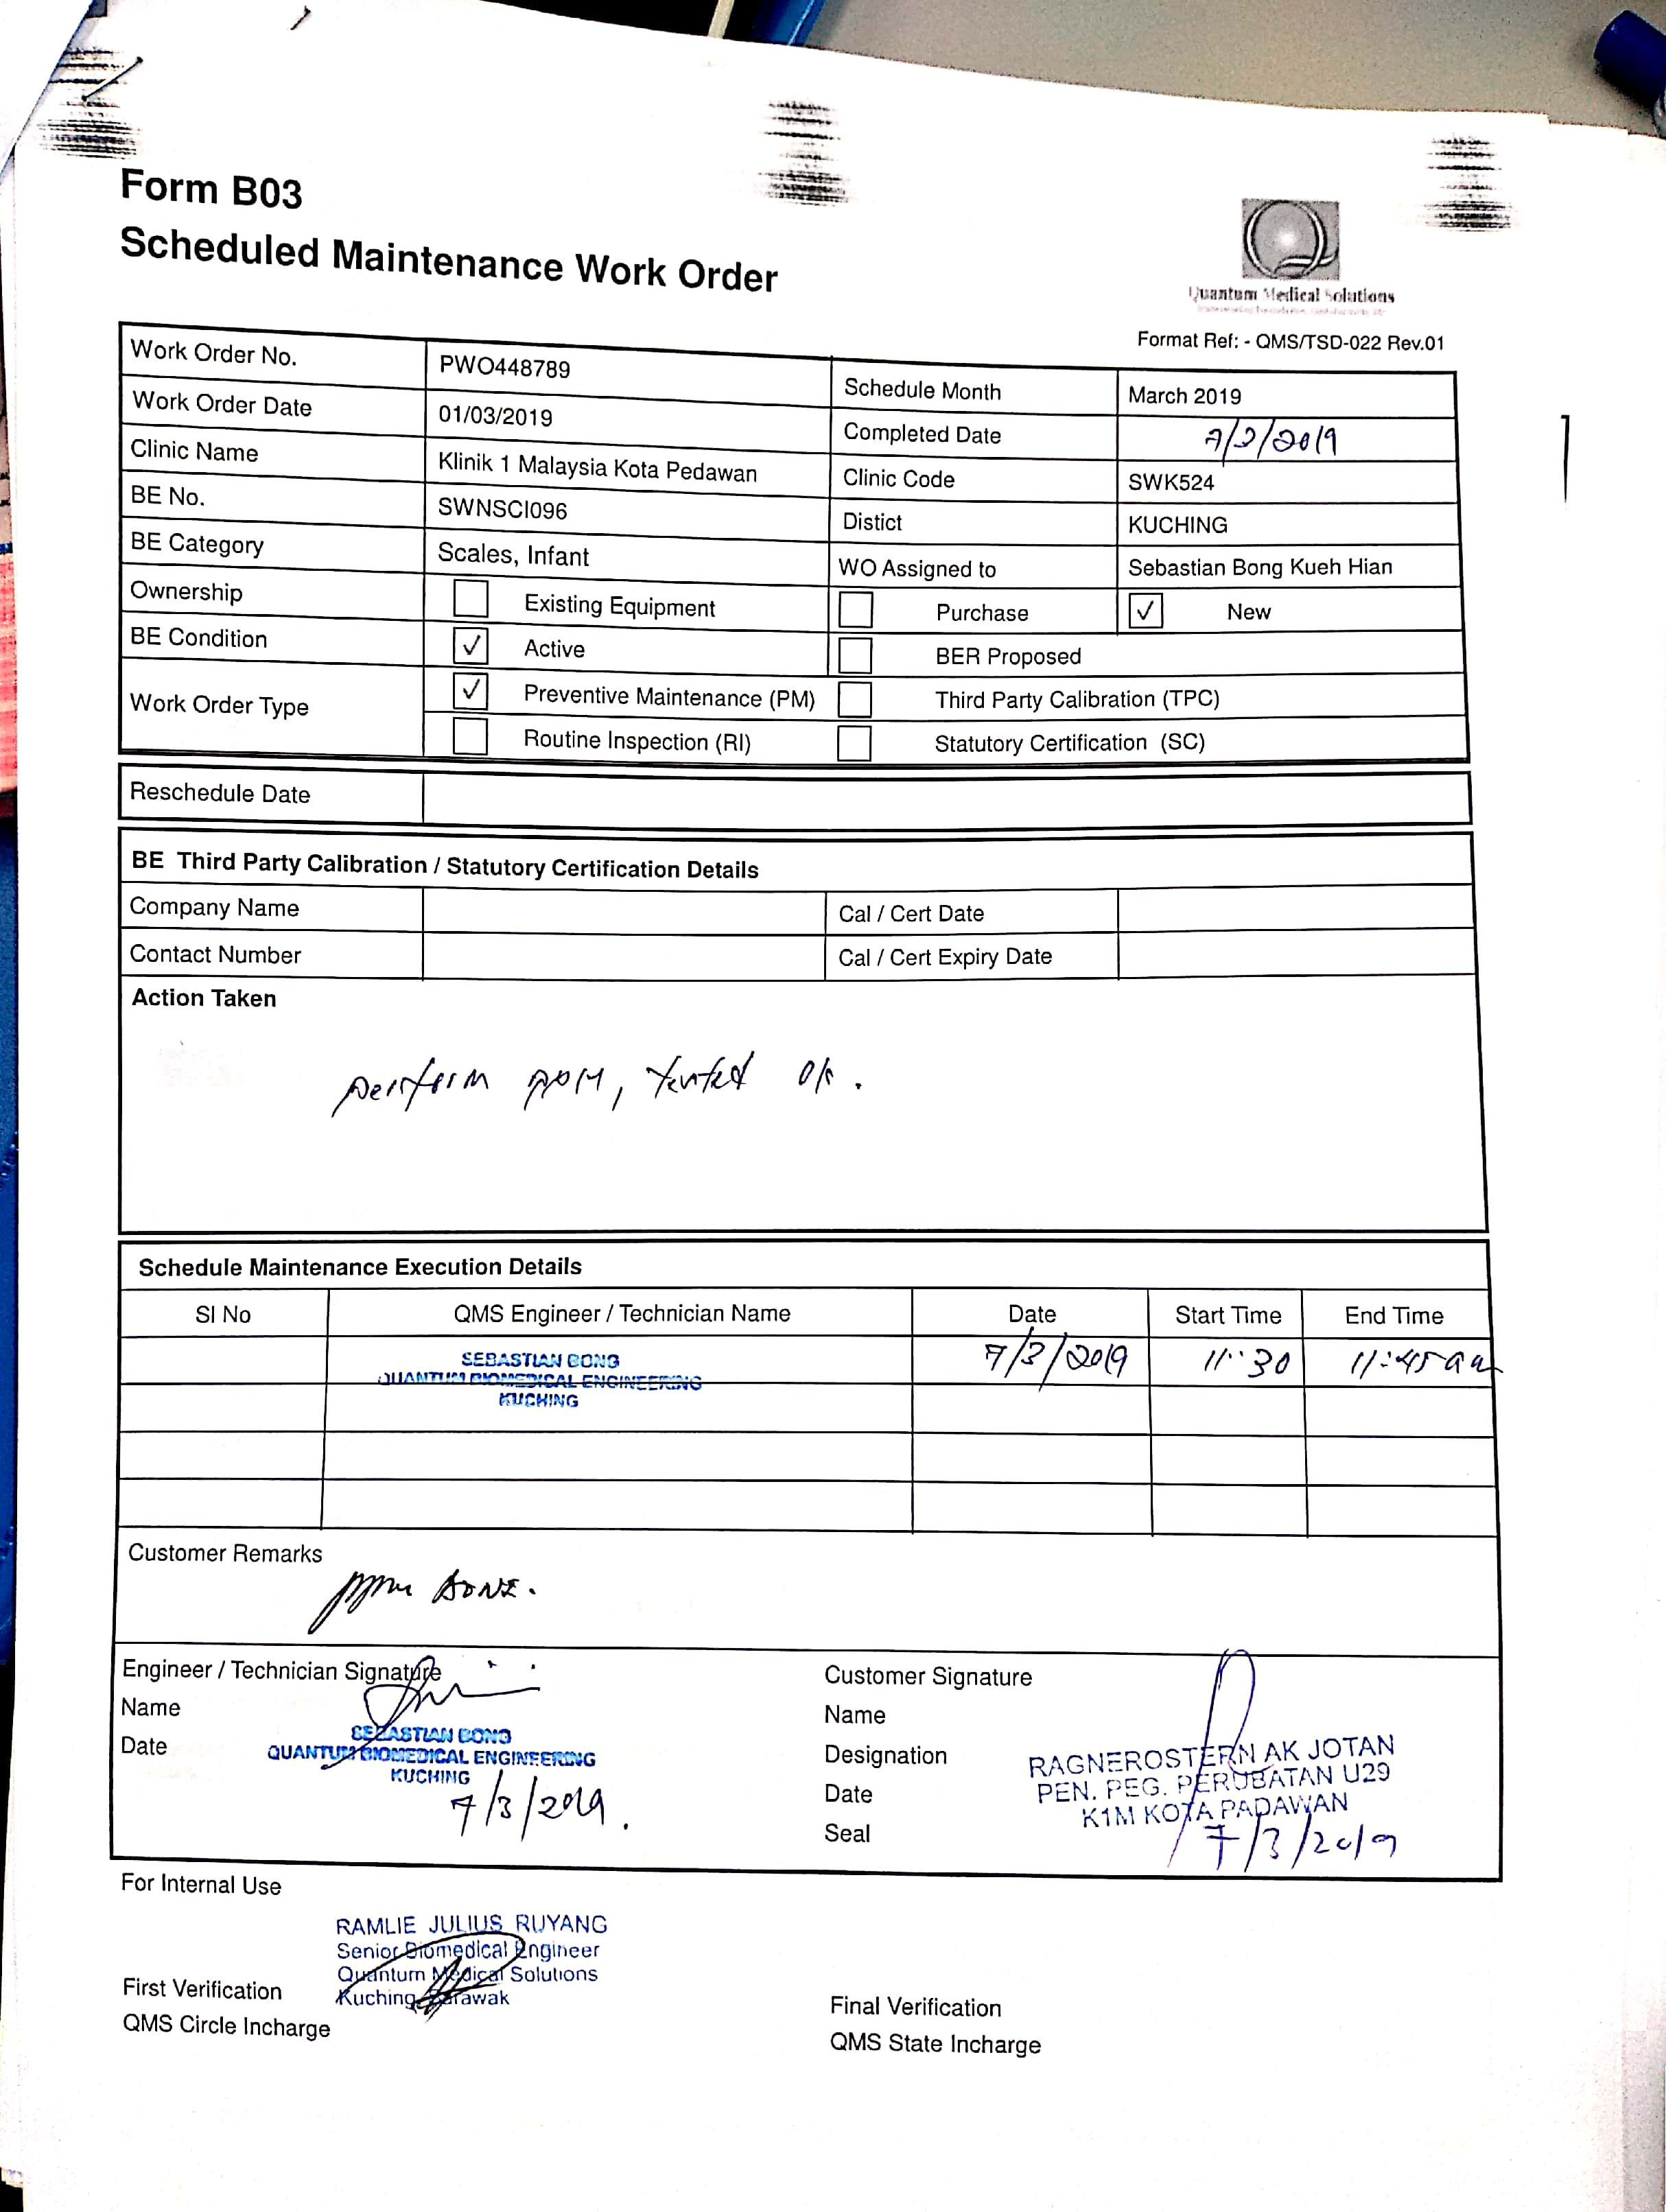 Form B03
Scheduled Maintenance Work Order
Quantum Medical Solutions
Format Ref: - QMS/TSD-022 Rev.01
Work Order No. PWO448789 Schedule Month March 2019
Work Order Date 01/03/2019 Completed Date 7/3/2019
Clinic Name Klinik 1 Malaysia Kota Pedawan Clinic Code SWK524
BE No. SWNSCI096 Distict KUCHING
BE Category Scales, Infant WO Assigned to Sebastian Bong Kueh Hian
Ownership Existing Equipment Purchase ✓ New
BE Condition ✓ Active BER Proposed
Work Order Type ✓ Preventive Maintenance (PM) Third Party Calibration (TPC)
Routine Inspection (RI) Statutory Certification (SC)
Reschedule Date
BE Third Party Calibration / Statutory Certification Details
Company Name Cal / Cert Date
Contact Number Cal / Cert Expiry Date
Action Taken
perform PPM, tested ok.
Schedule Maintenance Execution Details
SI No QMS Engineer / Technician Name Date Start Time End Time
SEBASTIAN BONG 7/3/2019 11:30 11:45 am
QUANTUM BIOMEDICAL ENGINEERING
KUCHING
Customer Remarks
ppm DONE.
Engineer / Technician Signature Customer Signature
Name Name
SEBASTIAN BONG
QUANTUM BIOMEDICAL ENGINEERING
KUCHING
Date 7/3/2019. Designation
RAGNEROSTERN AK JOTAN
PEN. PEG. PERUBATAN U29
K1M KOTA PADAWAN
Date 7/3/2019
Seal
For Internal Use
RAMLIE JULIUS RUYANG
Senior Biomedical Engineer
Quantum Medical Solutions
Kuching, Sarawak
First Verification Final Verification
QMS Circle Incharge QMS State Incharge